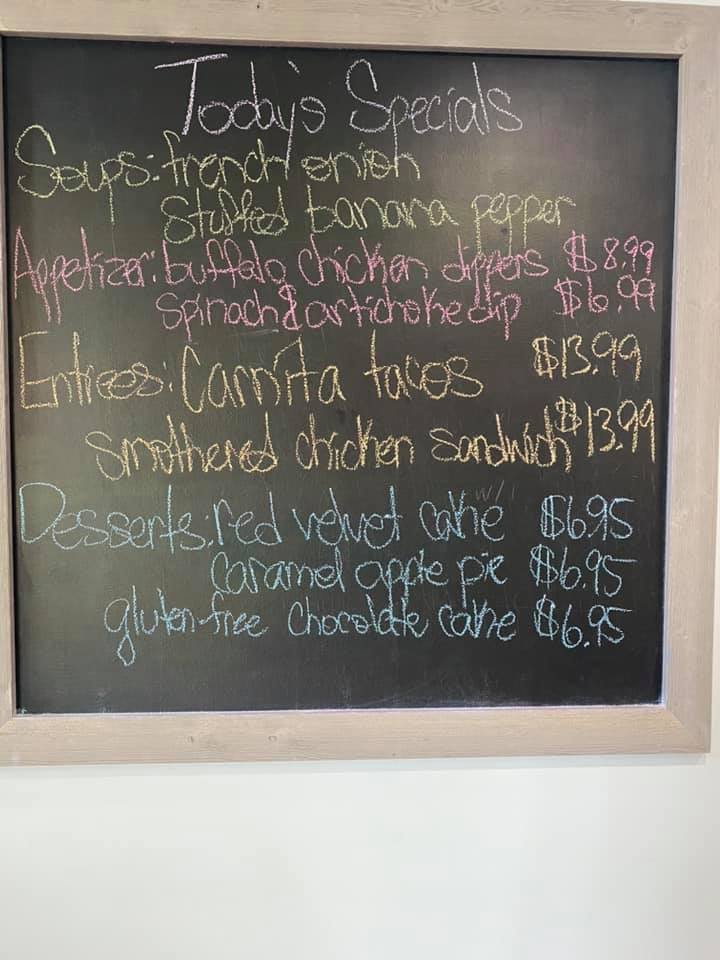 Today's Specials
Soups: french onion
Stuffed banana pepper
Appetizer: buffalo chicken dippers $8.99
spinach & artichoke dip $6.99
Entrees: Carnita tacos $13.99
smothered chicken sandwich $13.99
Desserts: red velvet cake $6.95
caramel apple pie $6.95
gluten-free chocolate cake $6.95